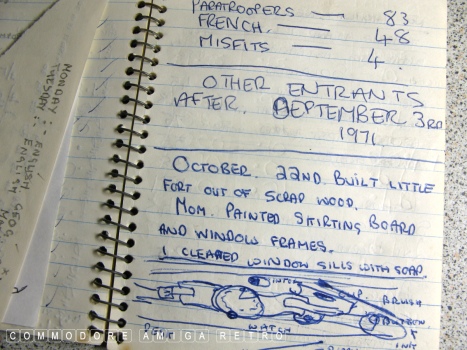 PARATROOPERS — 83
FRENCH. — 48
MISFITS — 4
OTHER ENTRANTS
AFTER. SEPTEMBER 3RD
1971
OCTOBER. 22ND. BUILT LITTLE
FORT OUT OF SCRAP WOOD.
MOM. PAINTED SKIRTING BOARD
AND WINDOW FRAMES.
I CLEANED WINDOW SILLS WITH SOAP.
BRUSH
BELT
WATCH
MONDAY :- ENGLISH GEOG
TUESDAY :- ENGLISH
COMMODORE AMIGA RETRO